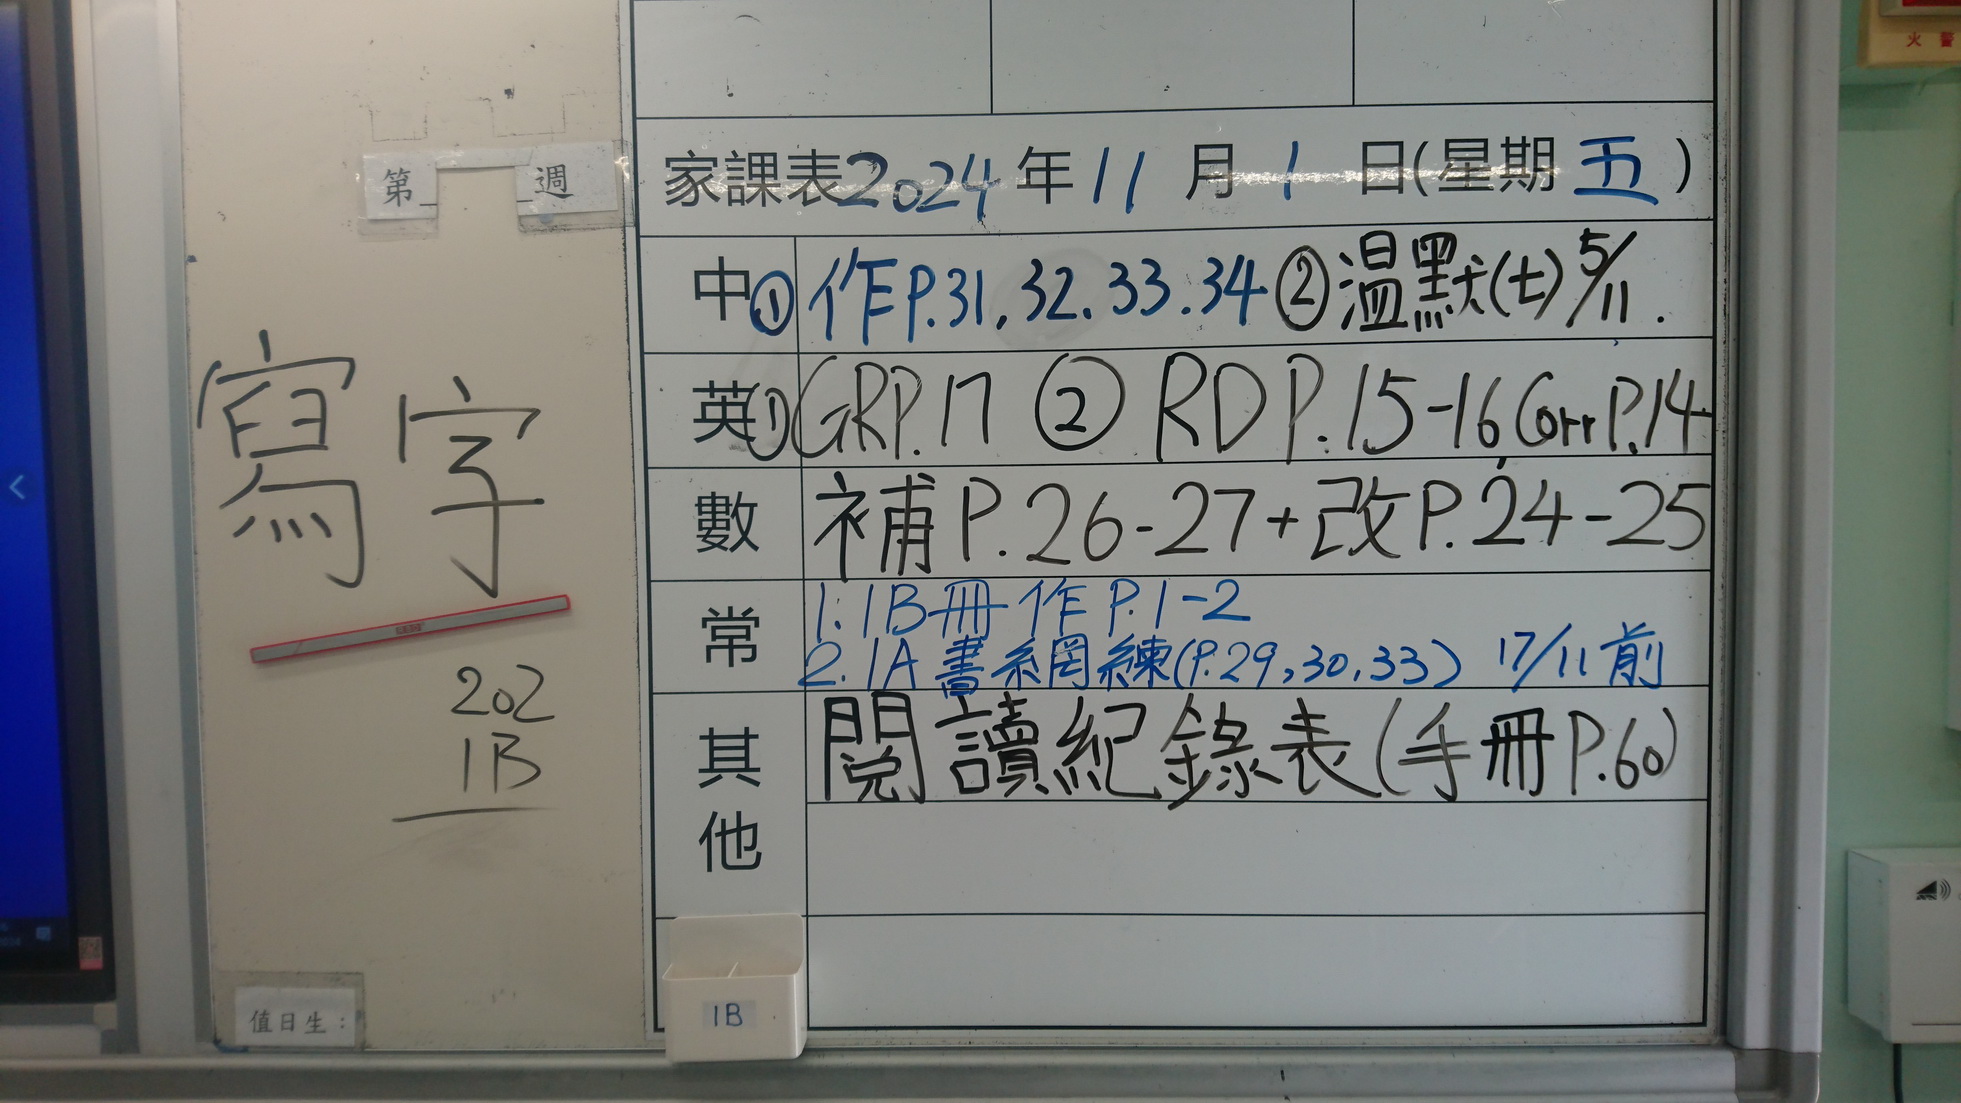 火警
第_ _週
家課表2024年11月1日(星期五)
中①作P.31,32.33.34②溫默(七)5/11.
英①GRP.17 ② RD P.15-16 Corr P.14
數 補P.26-27+改P.24-25
常 1.1B冊作P.1-2
2.1A書系岡練(P.29,30,33) 17/11前
其他 閱讀紀錄表(手冊P.60)
寫字
202
1B
值日生:
1B